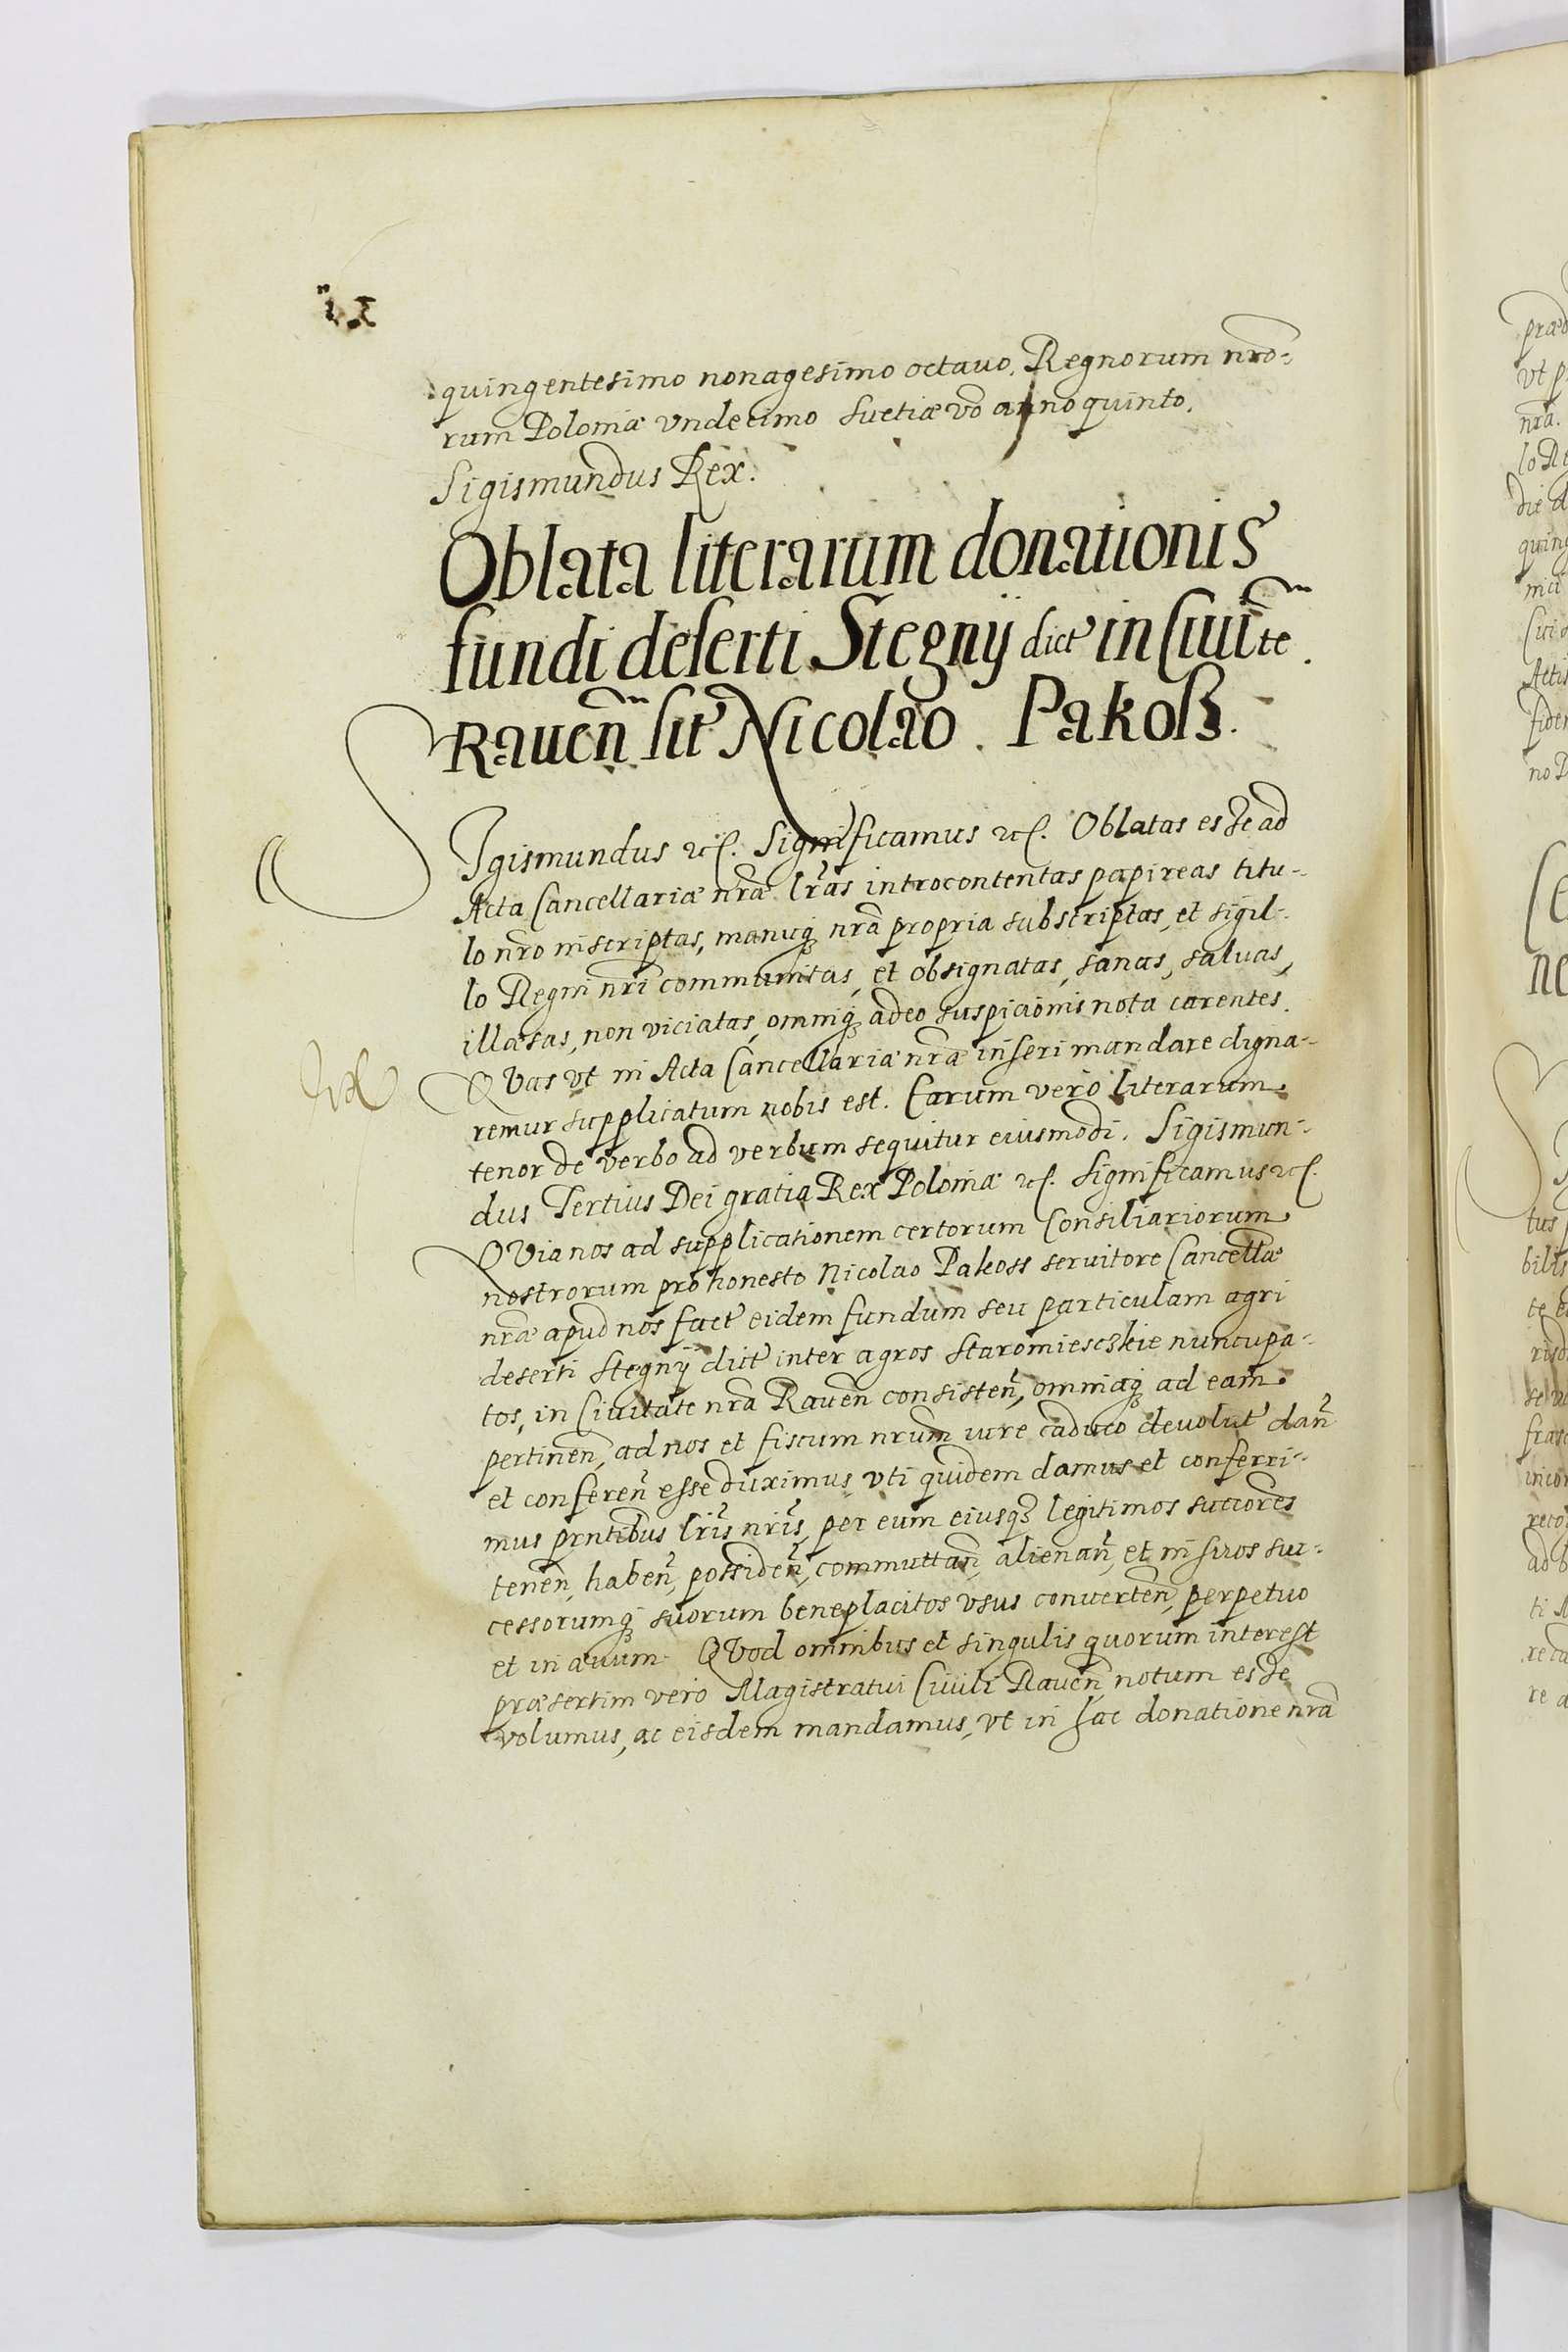 quingentesimo nonagesimo octauo. Regnorum nro-
rum Poloniæ vndecimo Suetiæ vo anno quinto.
Sigismundus Rex.
Oblata literarum donationis
fundi deserti Stegnÿ dict in Ciuite
Rauen̄ sit Nicolao. Pakoß.
SIgismundus etc. Significamus etc. Oblatas esse ad
Acta Cancellariæ nræ lras introcontentas papireas titu-
lo nro inscriptas, manuq nra propria subscriptas, et sigil-
lo Regni nri communitas, et obsignatas, sanas, saluas,
illæsas, non viciatas, omniq adeo suspicionis nota carentes.
QVas vt in Acta Cancellariæ nræ inseri mandare digna-
remur supplicatum nobis est. Earum vero literarum
tenor de verbo ad verbum sequitur eiusmodi. Sigismun-
dus Tertius Dei gratia Rex Poloniæ etc. Significamus etc.
QVia nos ad supplicationem certorum Consiliariorum
nostrorum pro honesto Nicolao Pakoss seruitore Cancellæ
nræ apud nos fact eidem fundum seu particulam agri
deserti Stegnÿ dict inter agros Staromiesczkie nuncupa-
tos, in Ciuitate nra Rauen̄ consisten̄, omniaq ad eam
pertinen̄, ad nos et fiscum nrum iure caduco deuolut dan̄
et conferen̄ esse duximus, vti quidem damus et conferri-
mus prntibus lris nris, per eum eiusq legitimos succores
tenen̄, haben̄, possiden̄, commuttan̄, alienan̄, et in suos suc-
cessorumq suorum beneplacitos vsus conuerten̄, perpetuo
et in æuum. QVod omnibus et singulis quorum interest
præsertim vero Magistratui Ciuili Rauen̄ notum esse
volumus, ac eisdem mandamus, vt in hac donatione nra